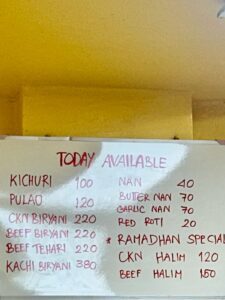 TODAY AVAILABLE
KICHURI 100
PULAO 120
CKN BIRYANI 220
BEEF BIRYANI 220
BEEF TEHARI 220
KACHI BIRYANI 380
NAN 40
BUTTER NAN 70
GARLIC NAN 70
RED ROTI 20
* RAMADHAN SPECIAL
CKN HALIM 120
BEEF HALIM 150